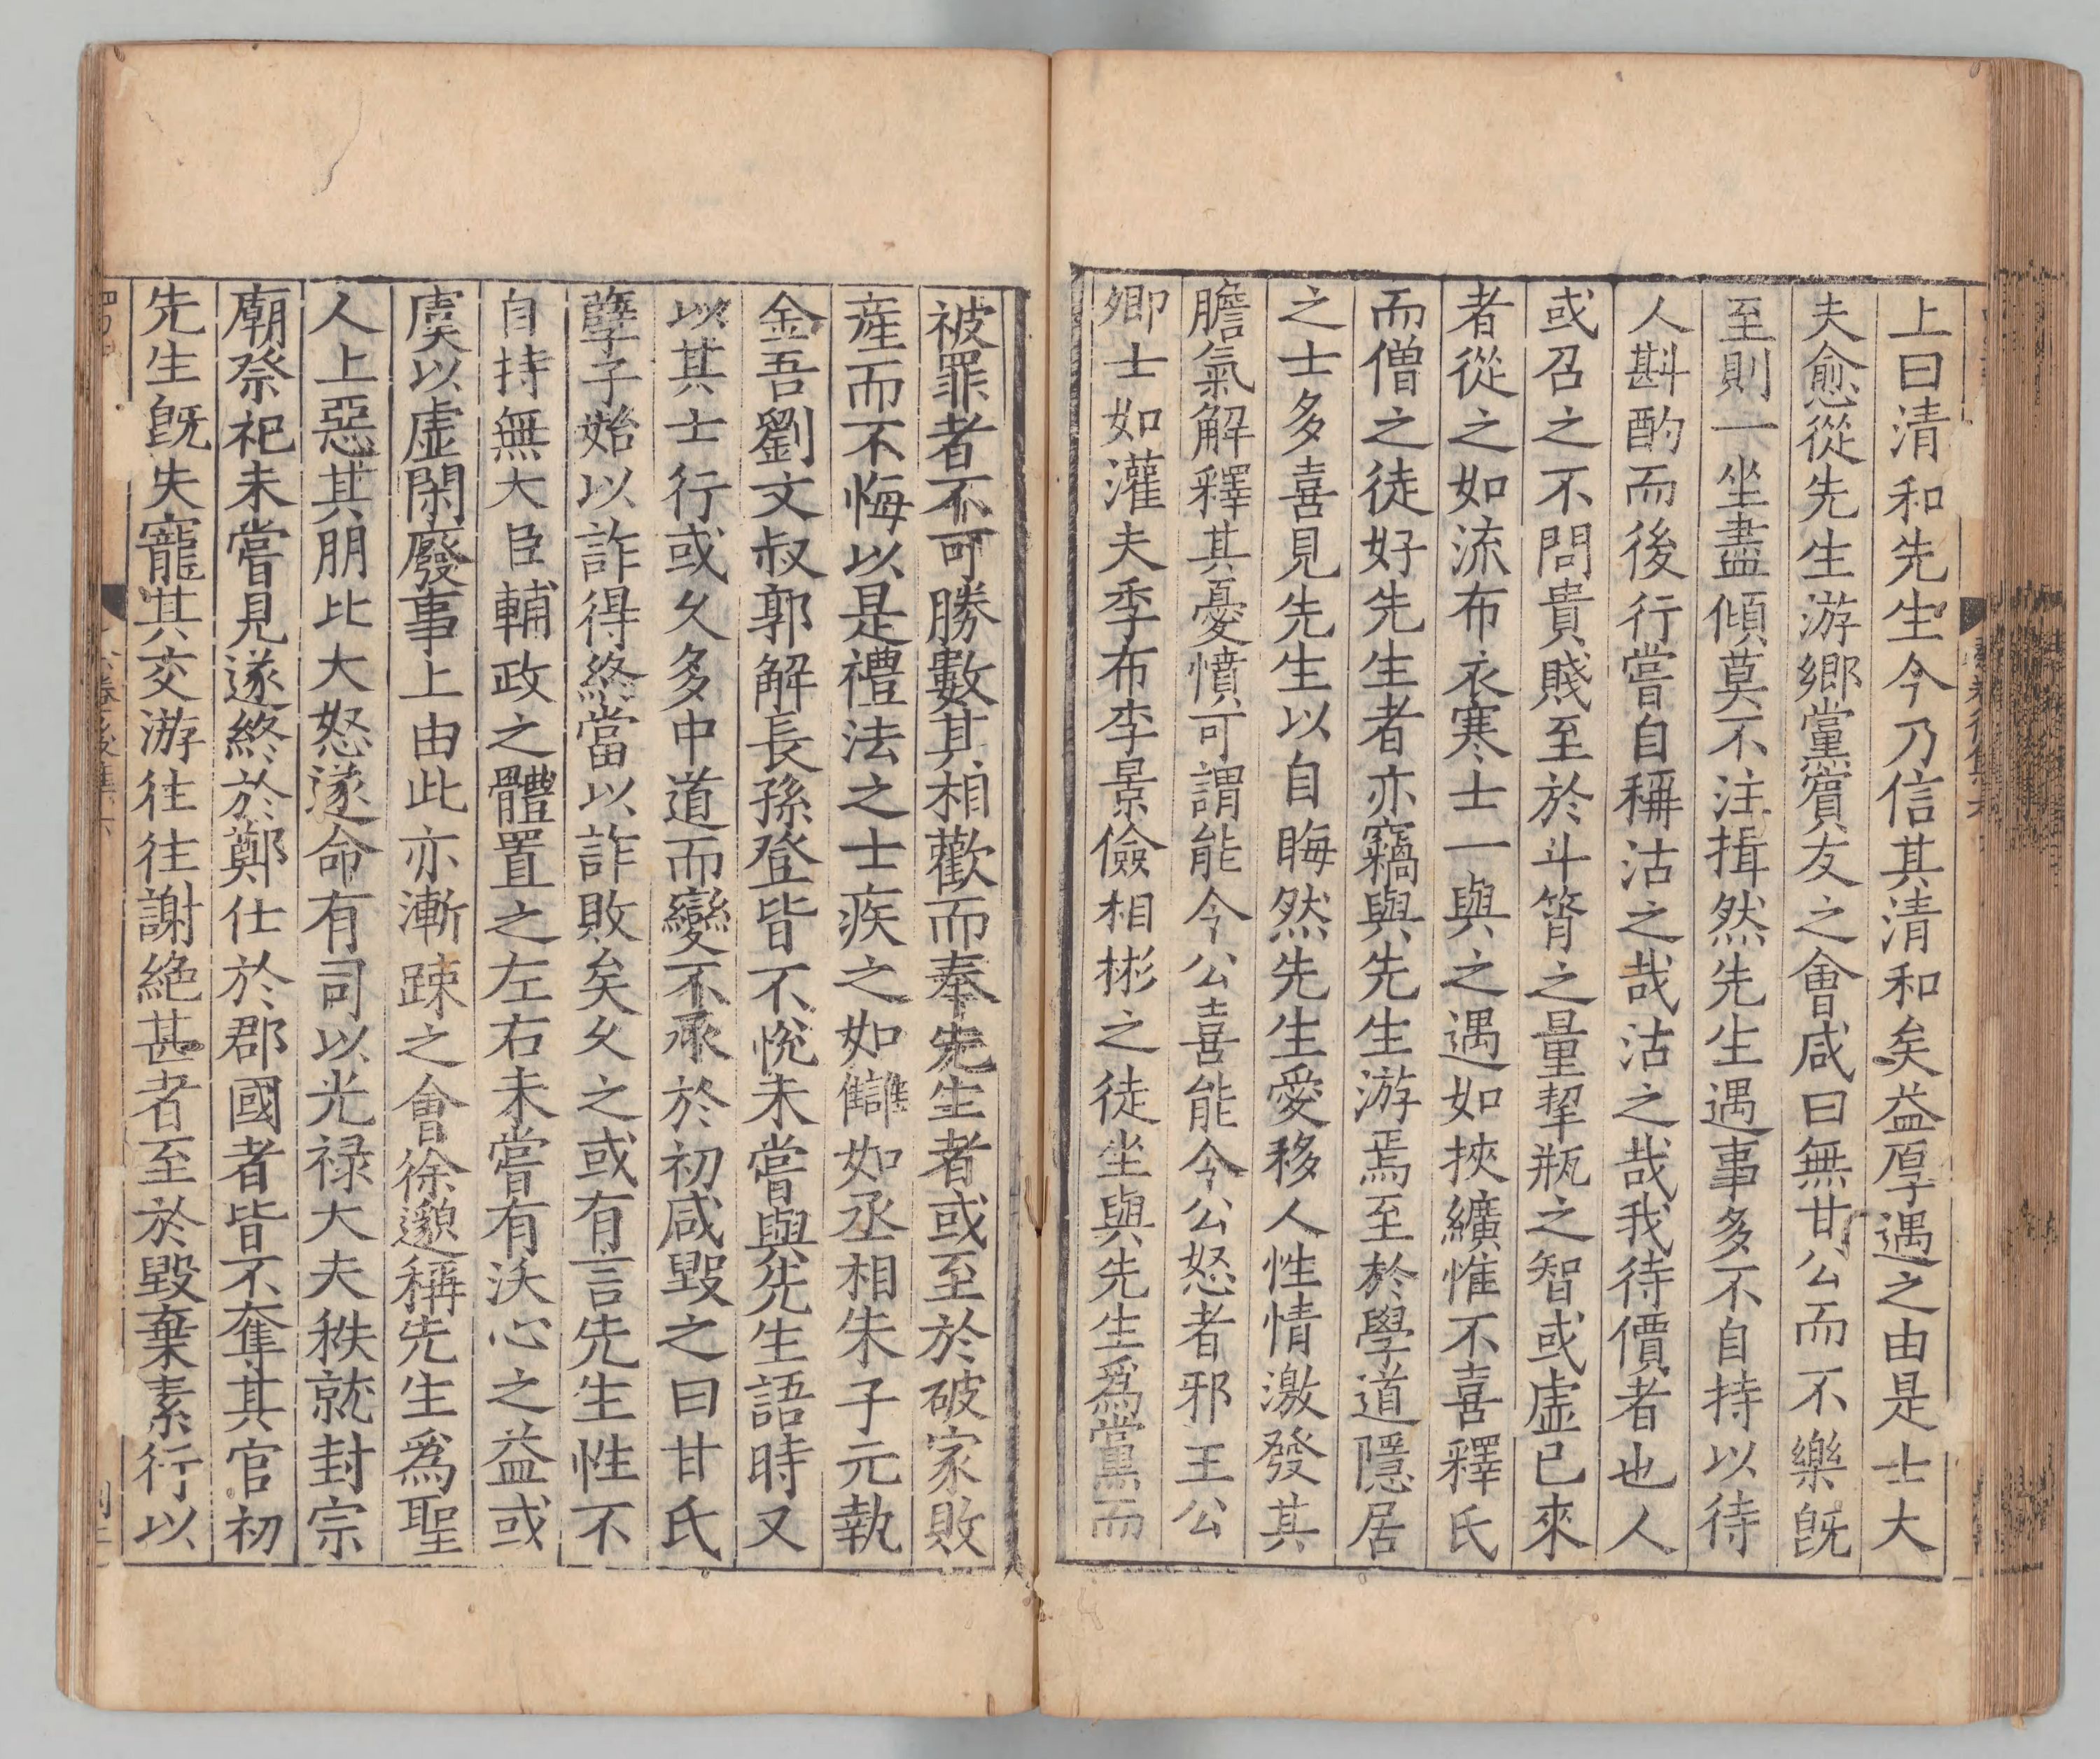 上曰清和先生今乃信其清和矣益厚遇之由是士大
夫愈從先生游鄉黨賓友之會咸曰無甘公而不樂旣
至則一坐盡傾莫不注揖然先生遇事多不自持以待
人斟酌而後行嘗自稱沽之哉沽之哉我待價者也人
或召之不問貴賤至於斗筲之量挈瓶之智或虛已來
者從之如流布衣寒士一與之遇如挾纊惟不喜釋氏
而僧之徒好先生者亦竊與先生游焉至於學道隱居
之士多喜見先生以自晦然先生愛移人性情激發其
膽氣解釋其憂憤可謂能令公喜能令公怒者邪王公
卿士如灌夫季布李景儉相彬之徒坐與先生爲黨而
被罪者不可勝數其相歡而奉先生者或至於破家敗
産而不悔以是禮法之士疾之如讎如丞相朱子元執
金吾劉文叔郭解長孫登皆不悅未嘗與先生語時又
以其士行或久多中道而變不承於初咸毀之曰甘氏
孽子始以詐得終當以詐敗矣久之或有言先生性不
自持無大臣輔政之體置之左右未嘗有沃心之益或
虞以虛閑廢事上由此亦漸踈之會徐邈稱先生爲聖
人上惡其朋比大怒遂命有司以光禄大夫秩就封宗
廟祭祀未嘗見遂終於鄭仕於郡國者皆不奪其官初
先生旣失寵其交游往往謝絕甚者至於毀棄素行以